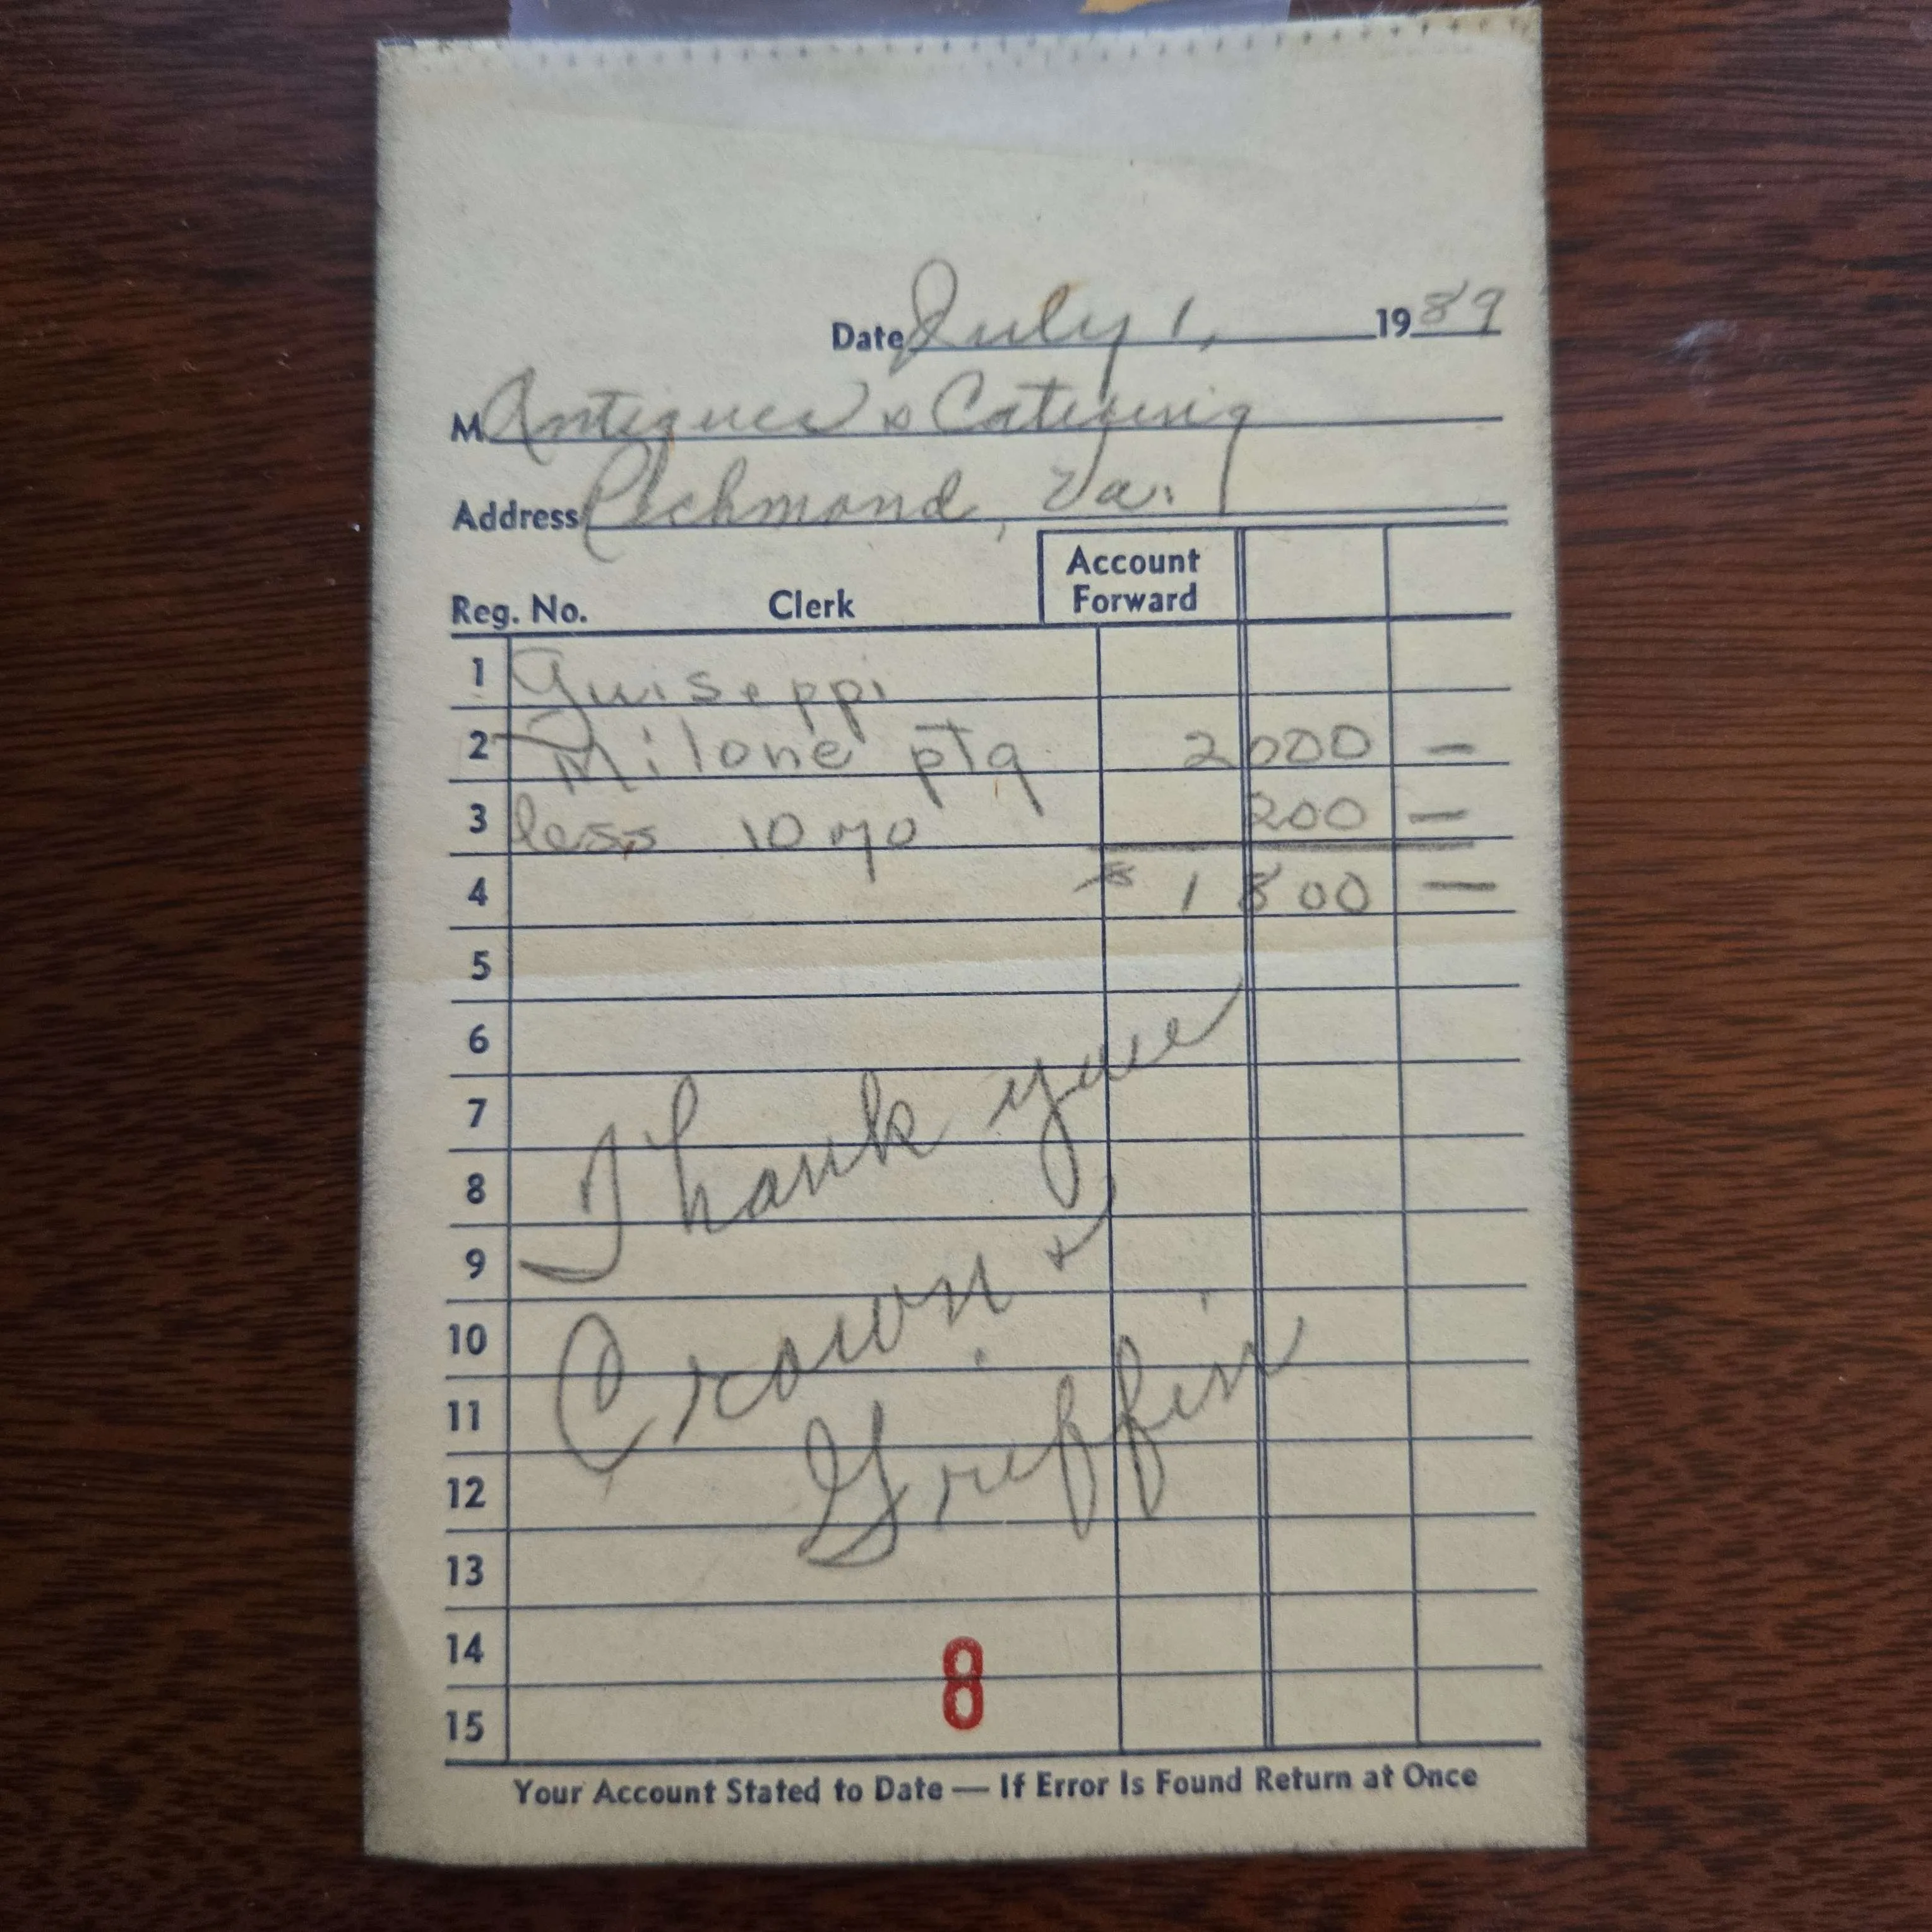 Date July 1, 1989
M Antiques & Catering
Address Richmond, Va.
Account
Forward
Reg. No. Clerk
1 Guiseppi
2 Milone ptg 2000 —
3 less 10 % 200 —
4 $ 1800 —
5
6
7
8
Thank you
9
10
Crown &
11
12
Griffin
13
14
8
15
Your Account Stated to Date — If Error Is Found Return at Once